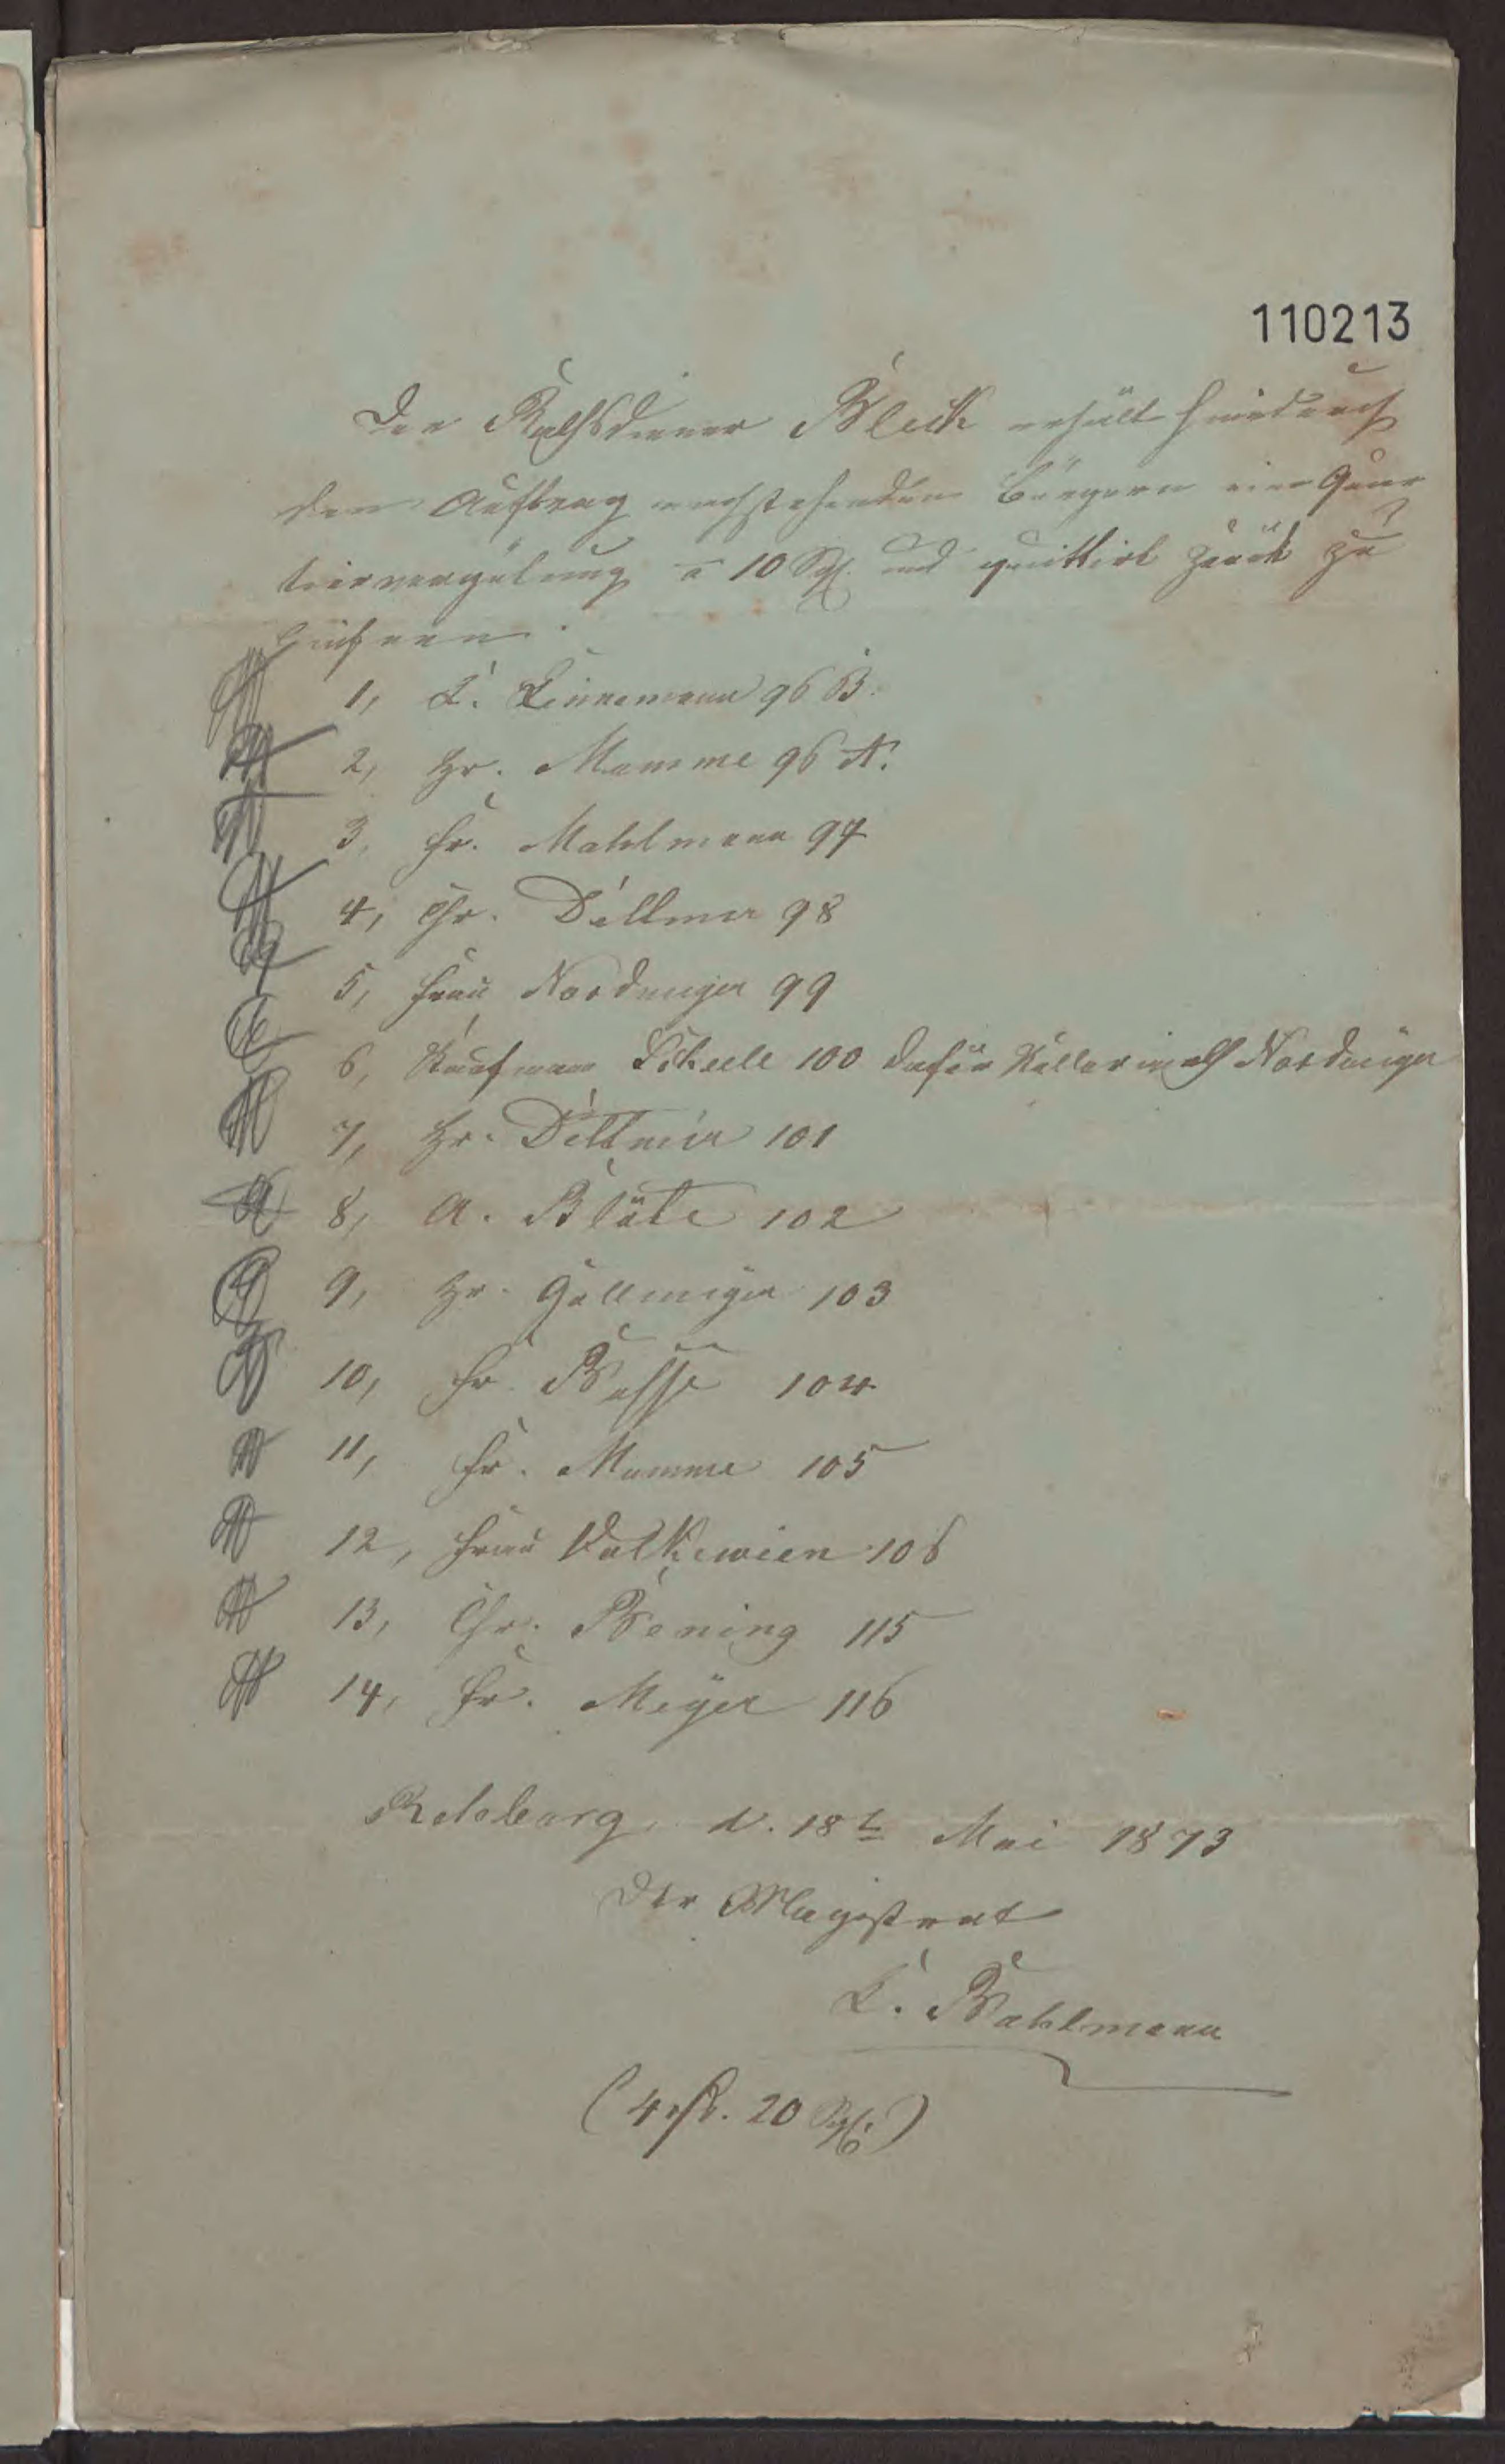 110213
Der Rathsdiener Bleck erhält hierdurch
den Auftrag nachstehenden Bürgern eine Quar
tiervergütung a 10 Sgr. und quittirt zurück zu
liefern.
1, L. Linnemann 96 B.
2, Hr. Mumme 96 A.
3, Fr. Mahlmann 97
4, Chr. Dettmer 98
5, Frau Nordmeyer 99
6, Kaufmann Scheele 100 dafür Nordmeyer
7, Hr. Dettmer 101
8, A. Bläte 102
9, Hr. Gellmeyer 103
10, Fr. Busse 104
11, Fr. Mumme 105
12, Frau Valkewien 106
13, Chr. Bening 115
14, Fr. Meyer 116
Rehburg, d. 18t Mai 1873
Der Magistrat
L. Bahlmann
(4 rt. 20 Sgr.)